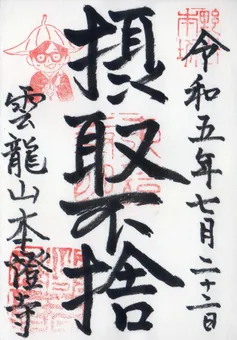 令和五年七月二十二日
摂取不捨
雲龍山本澄寺